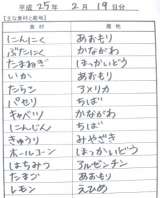 平成 25年 2月 19日分
【主な食料と産地】
食材 産地
にんにく あおもり
ぶたにく かながわ
たまねぎ ほっかいどう
いか あおもり
たらこ アメリカ
パセリ ちば
キャベツ かながわ
にんじん ちば
きゅうり みやざき
ホールコーン ほっかいどう
はちみつ アルゼンチン
たまご あおもり
レモン えひめ